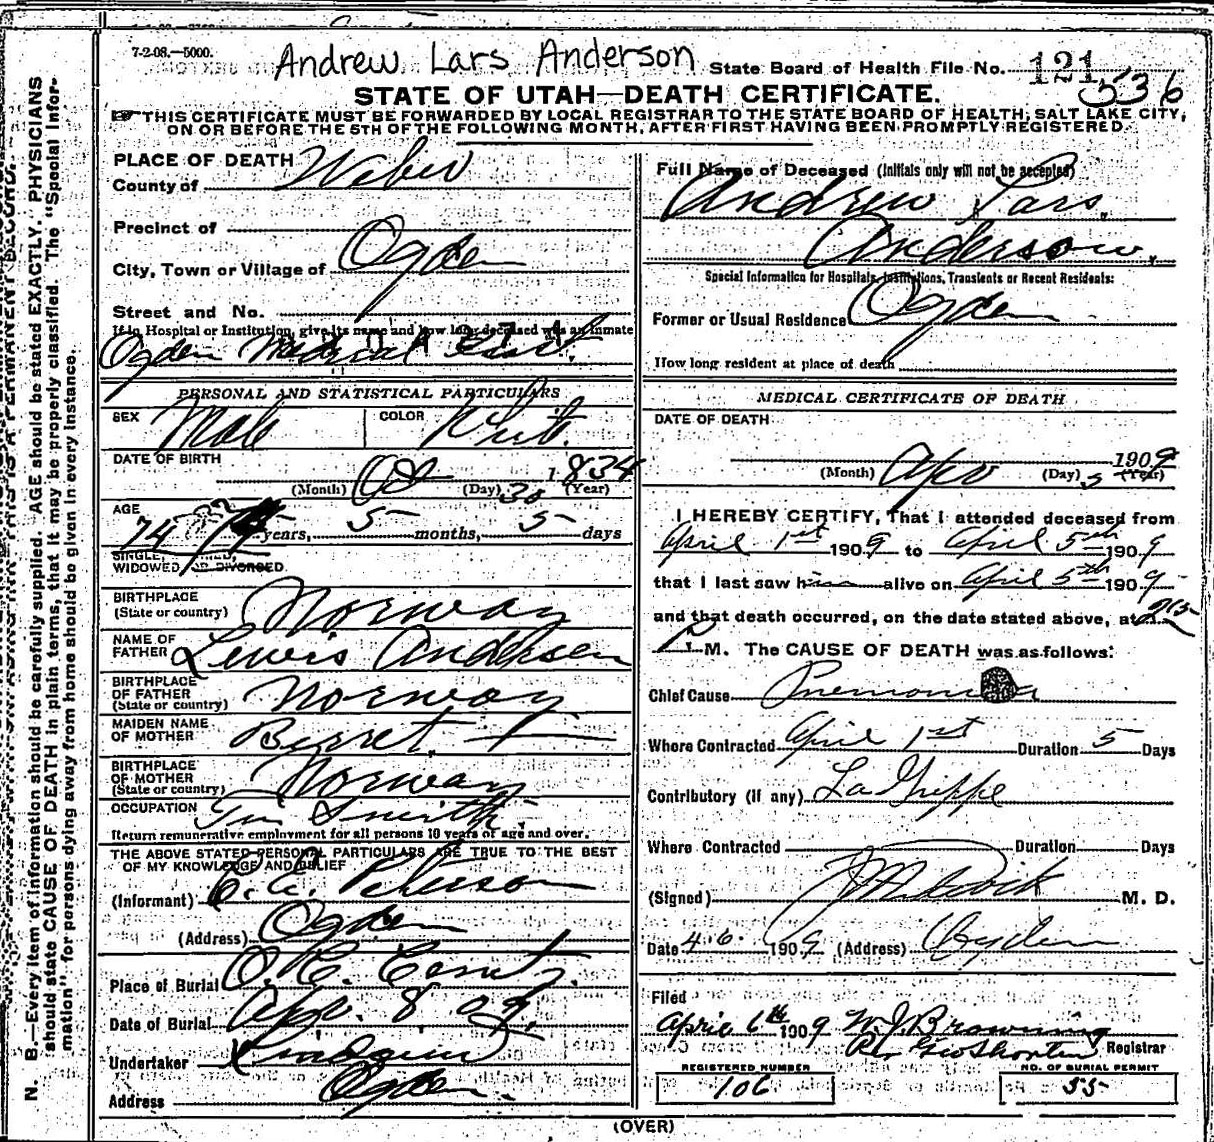 7-2-08.—5000.
Andrew Lars Anderson
State Board of Health File No. 121
536
STATE OF UTAH—DEATH CERTIFICATE.
THIS CERTIFICATE MUST BE FORWARDED BY LOCAL REGISTRAR TO THE STATE BOARD OF HEALTH, SALT LAKE CITY,
ON OR BEFORE THE 5TH OF THE FOLLOWING MONTH, AFTER FIRST HAVING BEEN PROMPTLY REGISTERED.
N. B.—Every item of information should be carefully supplied. AGE should be stated EXACTLY. PHYSICIANS
should state CAUSE OF DEATH in plain terms, that it may be properly classified. The "Special Infor-
mation" for persons dying away from home should be given in every instance.
THIS IS A PERMANENT RECORD.
PLACE OF DEATH
County of Weber
Precinct of
City, Town or Village of Ogden
Street and No.
If in Hospital or Institution, give its name and how long deceased was an inmate
Ogden Medical
PERSONAL AND STATISTICAL PARTICULARS
SEX Male COLOR White
DATE OF BIRTH
(Month) Oct (Day) 30 1834 (Year)
AGE
74 years, 5 months, 5 days
SINGLE,
WIDOWED OR DIVORCED.
BIRTHPLACE
(State or country) Norway
NAME OF
FATHER Lewis Andersen
BIRTHPLACE
OF FATHER
(State or country) Norway
MAIDEN NAME
OF MOTHER Berret
BIRTHPLACE
OF MOTHER
(State or country) Norway
OCCUPATION Tin Smith
Return remunerative employment for all persons 10 years of age and over.
THE ABOVE STATED PERSONAL PARTICULARS ARE TRUE TO THE BEST
OF MY KNOWLEDGE AND BELIEF
(Informant) C. A. Peterson
(Address) Ogden
Place of Burial O. C. Cemty.
Date of Burial Apr. 8, 09.
Undertaker
Address Ogden.
Full Name of Deceased (Initials only will not be accepted)
Andrew Lars.
Anderson.
Special Information for Hospitals, Institutions, Transients or Recent Residents:
Former or Usual Residence Ogden
How long resident at place of death
MEDICAL CERTIFICATE OF DEATH
DATE OF DEATH
(Month) Apr (Day) 5 1909 (Year)
I HEREBY CERTIFY, That I attended deceased from
April 1st 1909 to April 5th 1909
that I last saw him alive on April 5th 1909
and that death occurred, on the date stated above, at 2:15
P. M. The CAUSE OF DEATH was as follows:
Chief Cause Pnemonia
Where Contracted April 1st Duration 5 Days
Contributory (if any) La Grippe
Where Contracted Duration Days
(Signed) M. D.
Date 4.6. 1909 (Address) Ogden
Filed
April 6th 1909 W. J. Browning
Per Geo Shorten Registrar
REGISTERED NUMBER
106
NO. OF BURIAL PERMIT
55
(OVER)